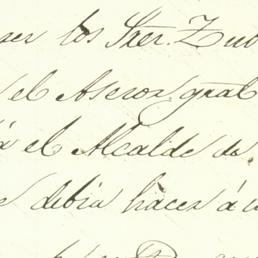 ser los Sres. Zub
el Asesor gral
á el Alcalde de
e debia hacer á u